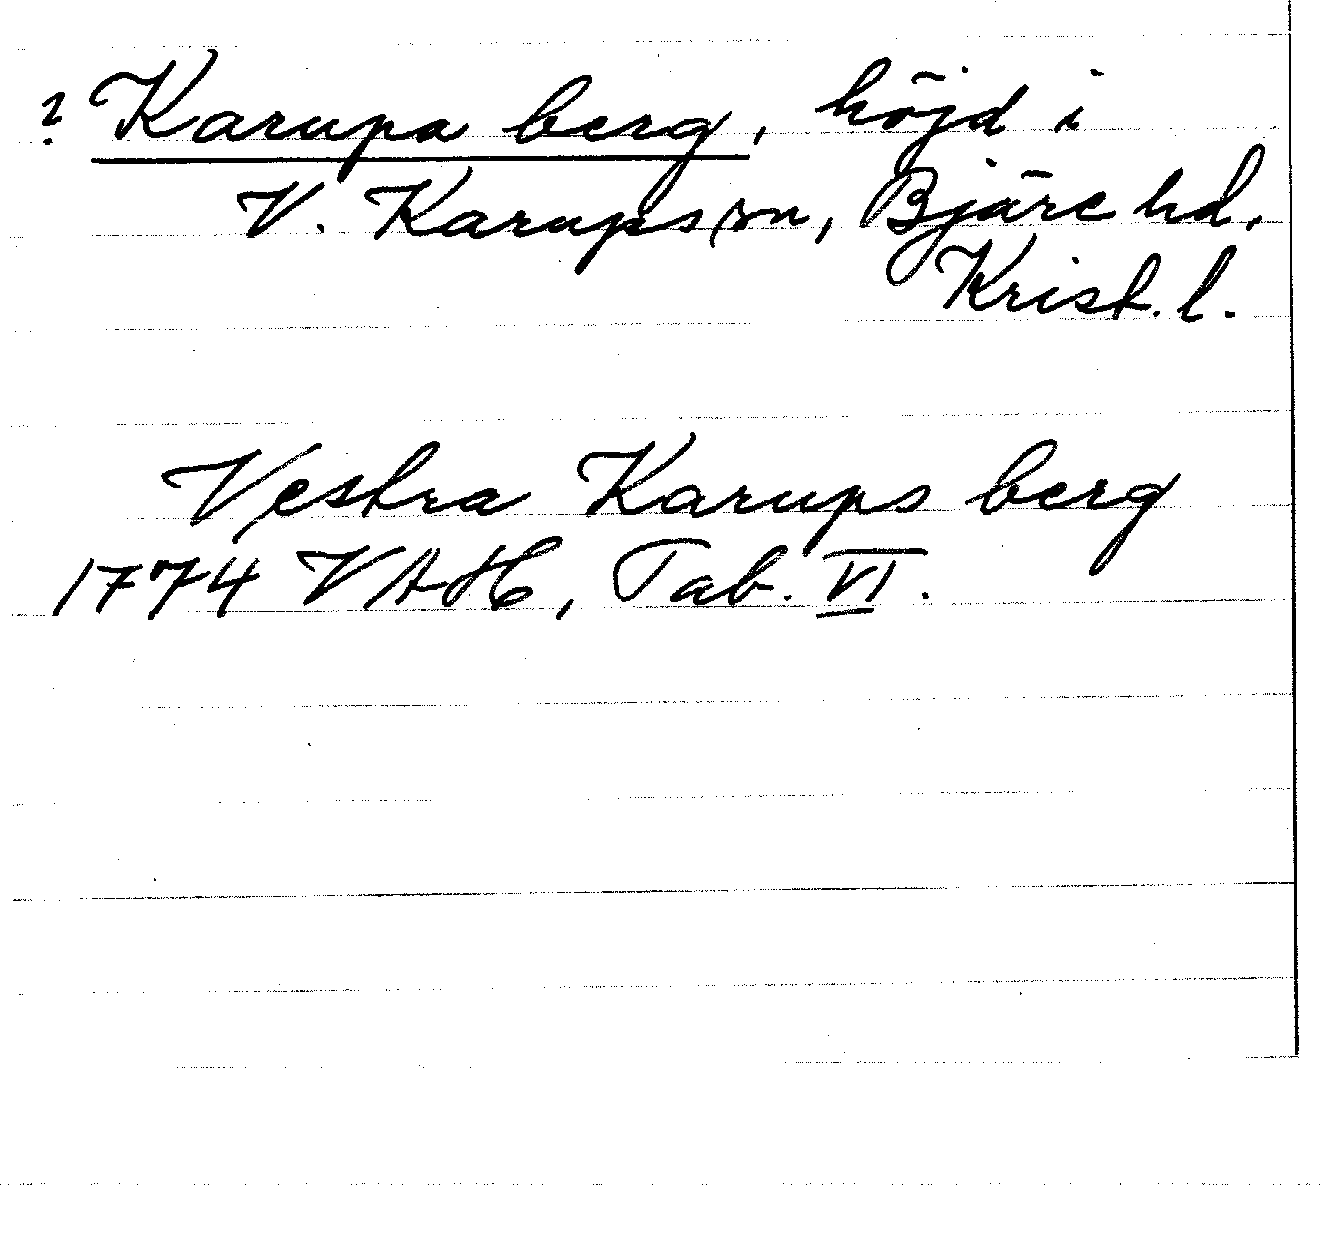 ? Karupa berg, höjd i
V. Karups sn, Bjäre hd,
Krist. l.
Vestra Karups berg
1774 VAH, Tab. VI.